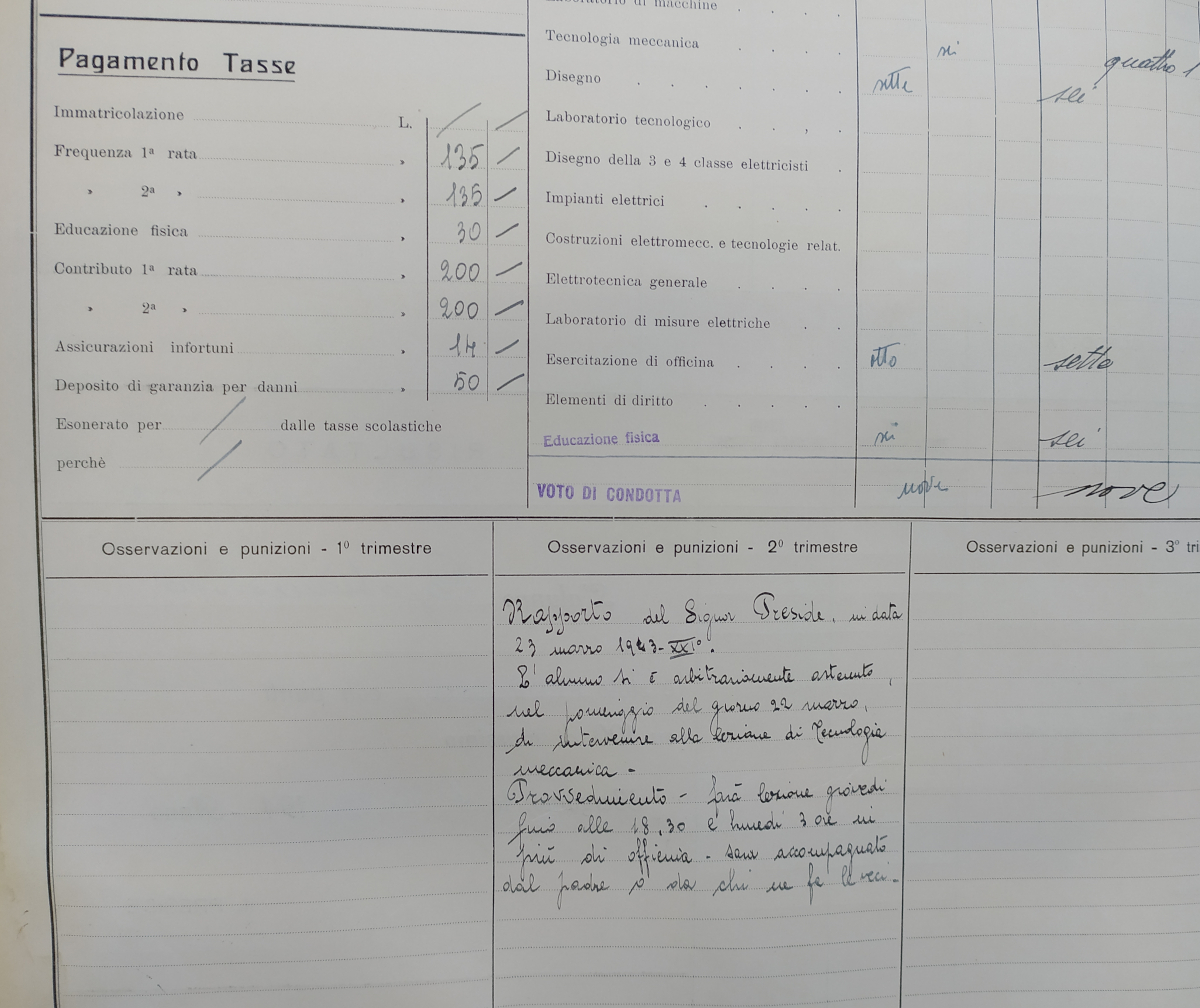 Pagamento Tasse
Immatricolazione L. /
Frequenza 1ª rata » 135
» 2ª » » 135
Educazione fisica » 30
Contributo 1ª rata » 200
» 2ª » » 200
Assicurazioni infortuni » 14
Deposito di garanzia per danni » 50
Esonerato per / dalle tasse scolastiche
perchè /
Laboratorio di macchine
Tecnologia meccanica sei quattro
Disegno sette sei
Laboratorio tecnologico
Disegno della 3 e 4 classe elettricisti
Impianti elettrici
Costruzioni elettromecc. e tecnologie relat.
Elettrotecnica generale
Laboratorio di misure elettriche
Esercitazione di officina otto sette
Elementi di diritto
Educazione fisica sei sei
VOTO DI CONDOTTA nove nove
Osservazioni e punizioni - 1º trimestre
Osservazioni e punizioni - 2º trimestre
Rapporto del Signor Preside, in data
23 marzo 1943-XXIº.
L'alunno si è arbitrariamente astenuto,
nel pomeriggio del giorno 22 marzo,
di intervenire alla lezione di Tecnologia
meccanica -
Provvedimento - farà lezione giovedì
fino alle 18,30 e lunedì 3 ore in
più di officina - sarà accompagnato
dal padre o da chi ne fa le veci.
Osservazioni e punizioni - 3º tri